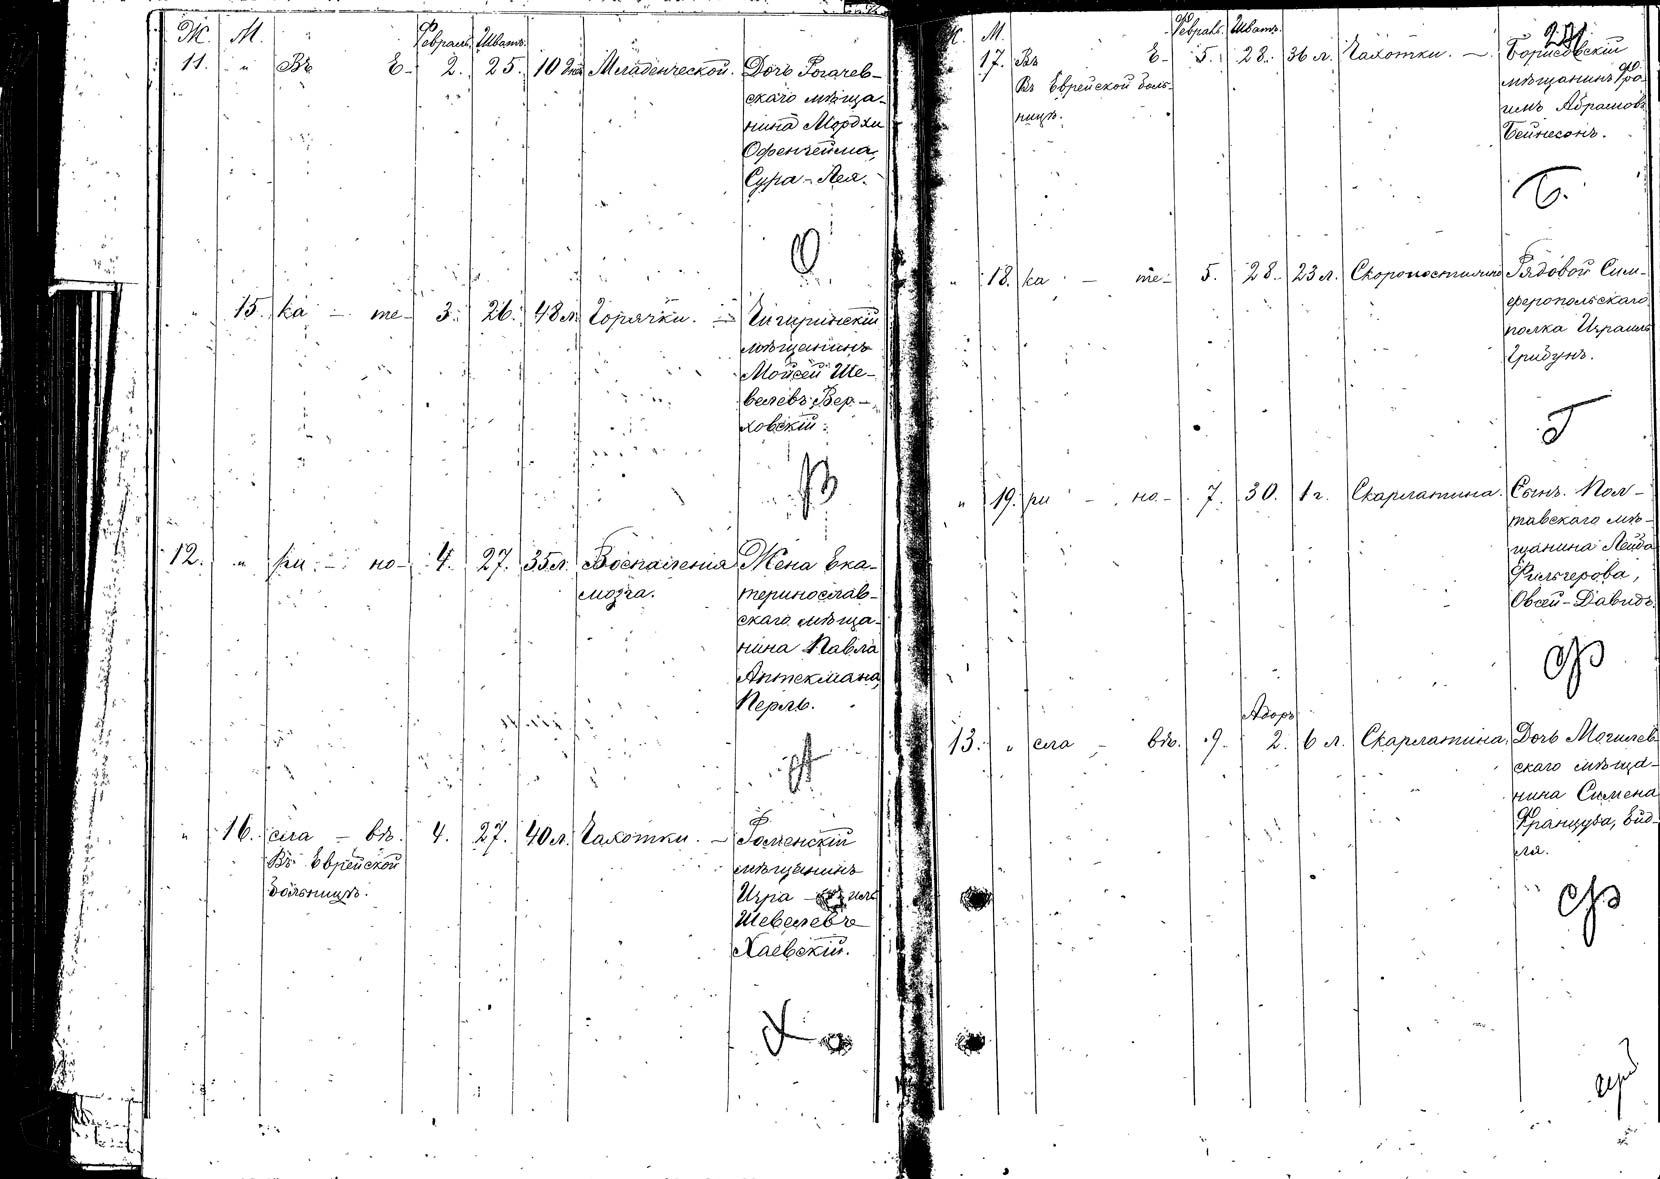 Ж. М. Февраль. Шватъ.
11. " Въ Е- 2. 25. 10 дн. Младенческой. Дочь Рогачев-
скаго мѣща-
нина Мордхи
Офенгейма,
Сура-Лея.
О
" 15. ка - те- 3. 26. 48 л. Горячки. - Чигиринскій
мѣщанинъ
Мойсей Ше-
велевъ Вер-
ховскій.
В
12. " ри - но- 4. 27. 35 л. Воспаленія Жена Ека-
мозга. теринослав-
скаго мѣща-
нина Павла
Аптекмана,
Перль.
А
" 16. сла - въ. 4. 27. 40 л. Чахотки. - Роменскій
Въ Еврейской мѣщанинъ
больницѣ. Изра - иль
Шевелевъ
Хаевскій.
Х
Ж. М. Февраль. Шватъ.
17. Въ Е- 5. 28. 36 л. Чахотки. - Борисовскій
Въ Еврейской боль- мѣщанинъ Фро-
ницѣ. имъ Абрамовъ
Бейнесонъ.
Б.
" 18. ка - те- 5. 28. 23 л. Скоропостижно Рядовой Сим-
феропольскаго
полка Израиль
Гридунъ.
Г
" 19. ри - но- 7. 30. 1 г. Скарлатина. Сынъ Пол-
тавскаго мѣ-
щанина Лейба
Фильгерова,
Овсей-Давидъ.
Ф
Адоръ
13. " сла - въ. 9. 2. 6 л. Скарлатина. Дочь Могилев-
скаго мѣща-
нина Симена
Француза, Ейд-
ля.
Ф